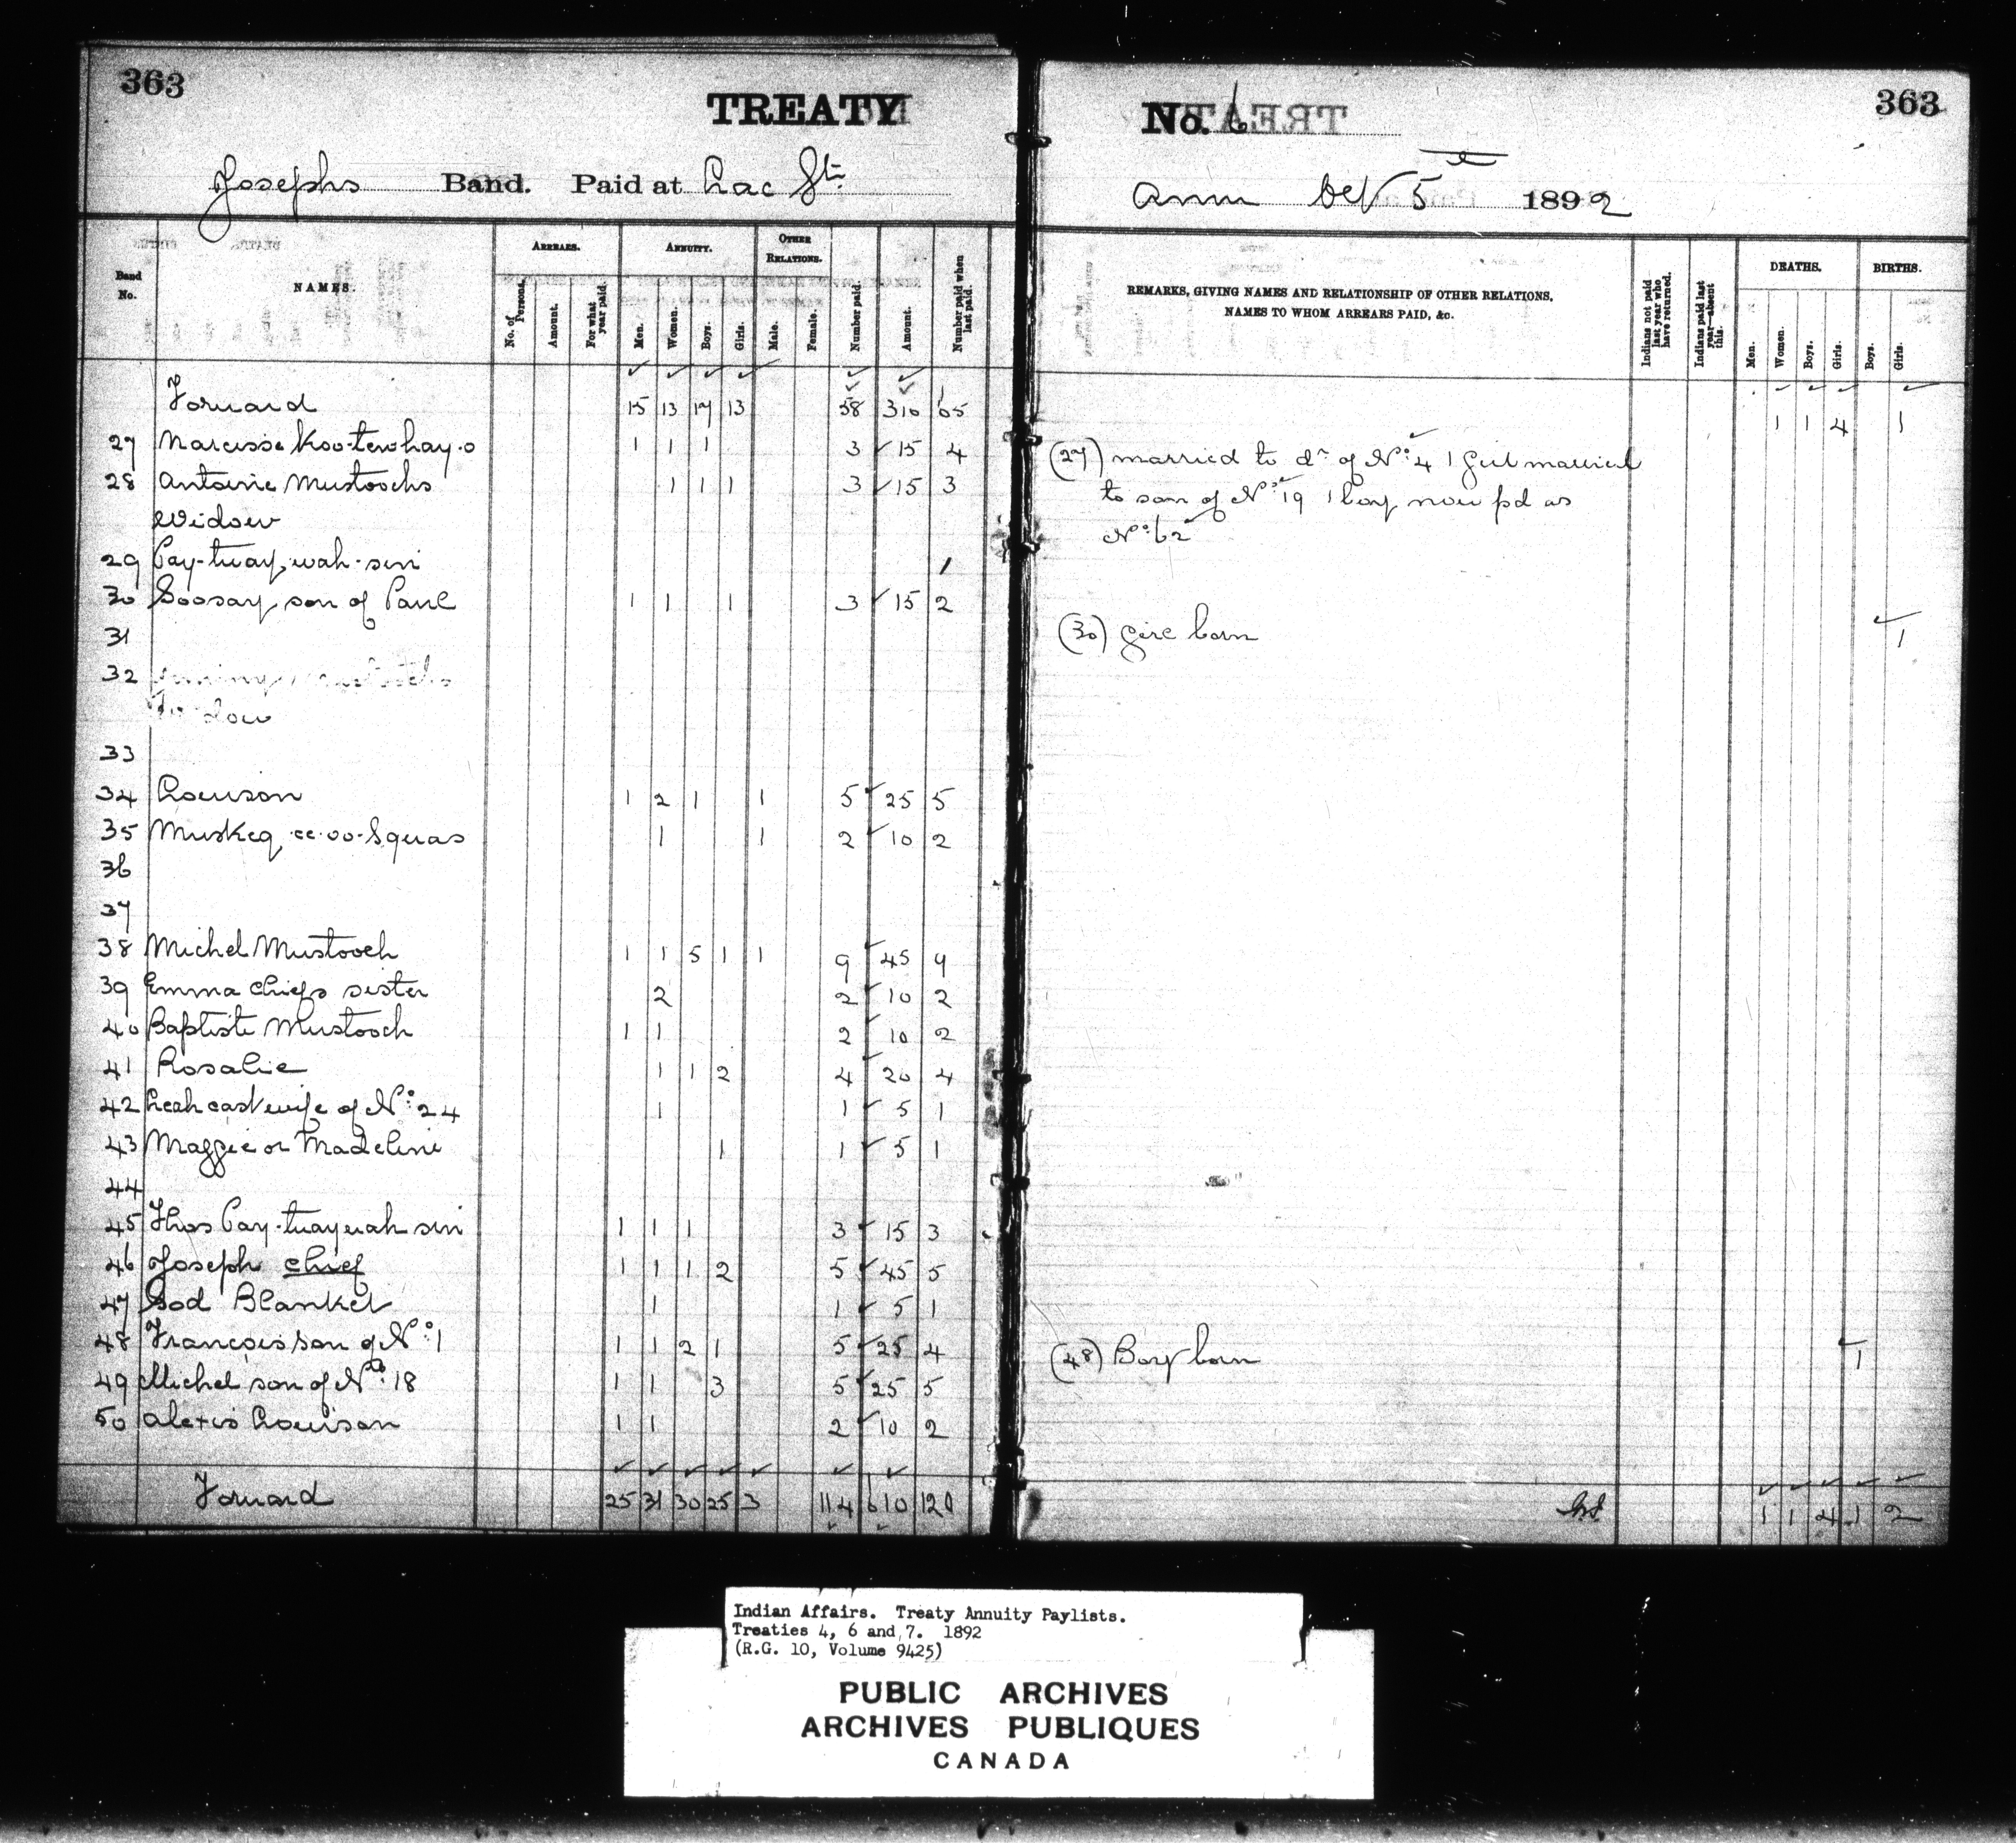 363
TREATY No. 6
363
Josephs Band. Paid at Lac Ste Anne Oct 5th 1892
Band No.
NAMES.
ARREARS.
ANNUITY.
OTHER RELATIONS.
No. of Persons.
Amount.
For what year paid.
Men.
Women.
Boys.
Girls.
Male.
Female.
Number paid.
Amount.
Number paid when last paid.
REMARKS, GIVING NAMES AND RELATIONSHIP OF OTHER RELATIONS, NAMES TO WHOM ARREARS PAID, &c.
Indians not paid last year who have returned.
Indians paid last year—absent this.
DEATHS.
BIRTHS.
Men.
Women.
Boys.
Girls.
Boys.
Girls.
Forward 15 13 17 13 58 310 65 1 1 4 1
27 Narcisse Koo-tew-hay-o 1 1 1 3 15 4 (27) married to dr of No 4 1 Girl married
28 Antoine Mustoochs 1 1 1 3 15 3 to son of No 19 1 boy now pd as
Widow No 62
29 Pay-tway-wah-sin 1
30 Soosay son of Paul 1 1 1 3 15 2 (30) girl born 1
31
32
Widow
33
34 Louison 1 2 1 1 5 25 5
35 Muskeg-ee-oo-Squas 1 1 2 10 2
36
37
38 Michel Mustooch 1 1 5 1 1 9 45 9
39 Emma chiefs sister 2 2 10 2
40 Baptiste Mustooch 1 1 2 10 2
41 Rosalie 1 1 2 4 20 4
42 Leah cast wife of No 24 1 1 5 1
43 Maggie or Madeline 1 1 5 1
44
45 Thos Pay-tway-wah sin 1 1 1 3 15 3
46 Joseph chief 1 1 1 2 5 45 5
47 Sod Blanket 1 1 5 1
48 Francois son of No 1 1 1 2 1 5 25 4 (48) Boy born 1
49 Michel son of No 18 1 1 3 5 25 5
50 Alexis Louison 1 1 2 10 2
Forward 25 31 30 25 3 114 610 120 1 1 4 1 2
Indian Affairs. Treaty Annuity Paylists.
Treaties 4, 6 and 7. 1892
(R.G. 10, Volume 9425)
PUBLIC ARCHIVES
ARCHIVES PUBLIQUES
CANADA